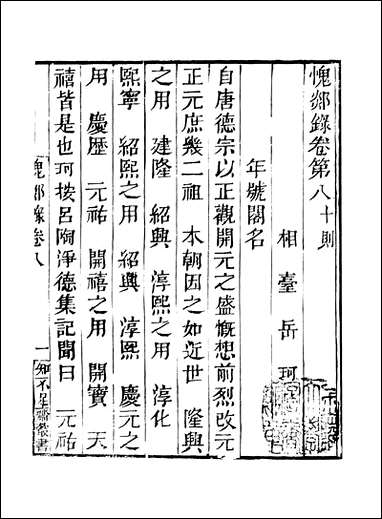 愧郯錄卷第八十則
相臺岳珂
年號閣名
自唐德宗以正觀開元之盛慨想前烈改元
正元庶幾二祖 本朝因之如近世 隆興
之用 建隆 紹興 淳熙之用 淳化
熙寧 紹熙之用 紹興 淳熙 慶元之
用 慶歷 元祐 開禧之用 開寶 天
禧皆是也珂按呂陶淨德集記聞曰 元祐
愧郯錄卷八 一 知不足齋叢書